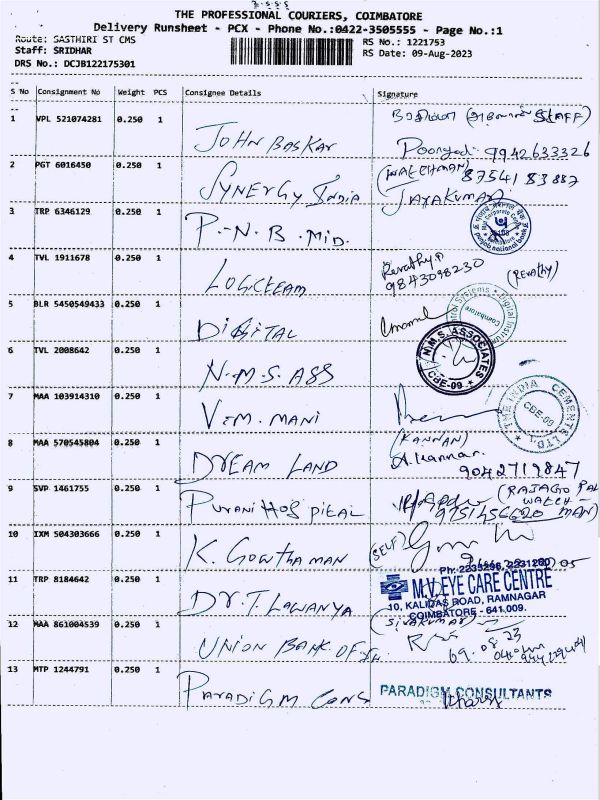 THE PROFESSIONAL COURIERS, COIMBATORE
Delivery Runsheet - PCX - Phone No.:0422-3505555 - Page No.:1
Route: SASTHIRI ST CMS
RS No.: 1221753
Staff: SRIDHAR
RS Date: 09-Aug-2023
DRS No.: DCJB122175301
S No Consignment No Weight PCS Consignee Details Signature
1 VPL 521074281 0.250 1 JOHN BASKAR STAFF) 9942633326
2 PGT 6016450 0.250 1 SYNERGY India (WATCHMAN) 87541 83887 JAYAKUMAR
3 TRP 6346129 0.250 1 P.N.B. MID. punjab national bank
4 TVL 1911678 0.250 1 LOGICTEAM Revathy.P 9843098230 (Revathy)
5 BLR 5450549433 0.250 1 DIGITAL Digital Coimbatore
6 TVL 2008642 0.250 1 N.M.S. ASS N.M.S. ASSOCIATES CBE-09
7 MAA 103914310 0.250 1 V.M. MANI THE INDIA CEMENTS LTD. CBE-09
8 MAA 570545804 0.250 1 DREAM LAND (KANNAN) A.Kannan. 9042719847
9 SVP 1461755 0.250 1 Purani Hospital WATCH-MAN)
10 IXM 504303666 0.250 1 K. GOWTHAMAN (SELF)
11 TRP 8184642 0.250 1 DR.T. LAWANYA M.V. EYE CARE CENTRE
10, KALIDAS ROAD, RAMNAGAR
COIMBATORE - 641,009.
12 MAA 861004539 0.250 1 UNION BANK OF (SIVAKUMAR)
13 MTP 1244791 0.250 1 PARADIGM CONS PARADIGM CONSULTANTS